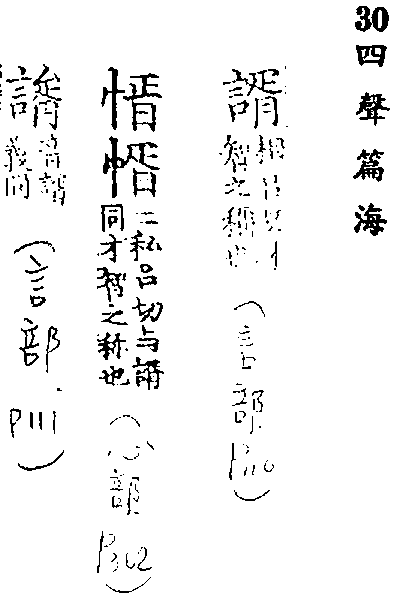 30四聲篇海
諝
智之稱也
(言部 P110)
二私呂切与諝
同才智之稱也
(心部 P302)
音諝
義同
(言部 P111)